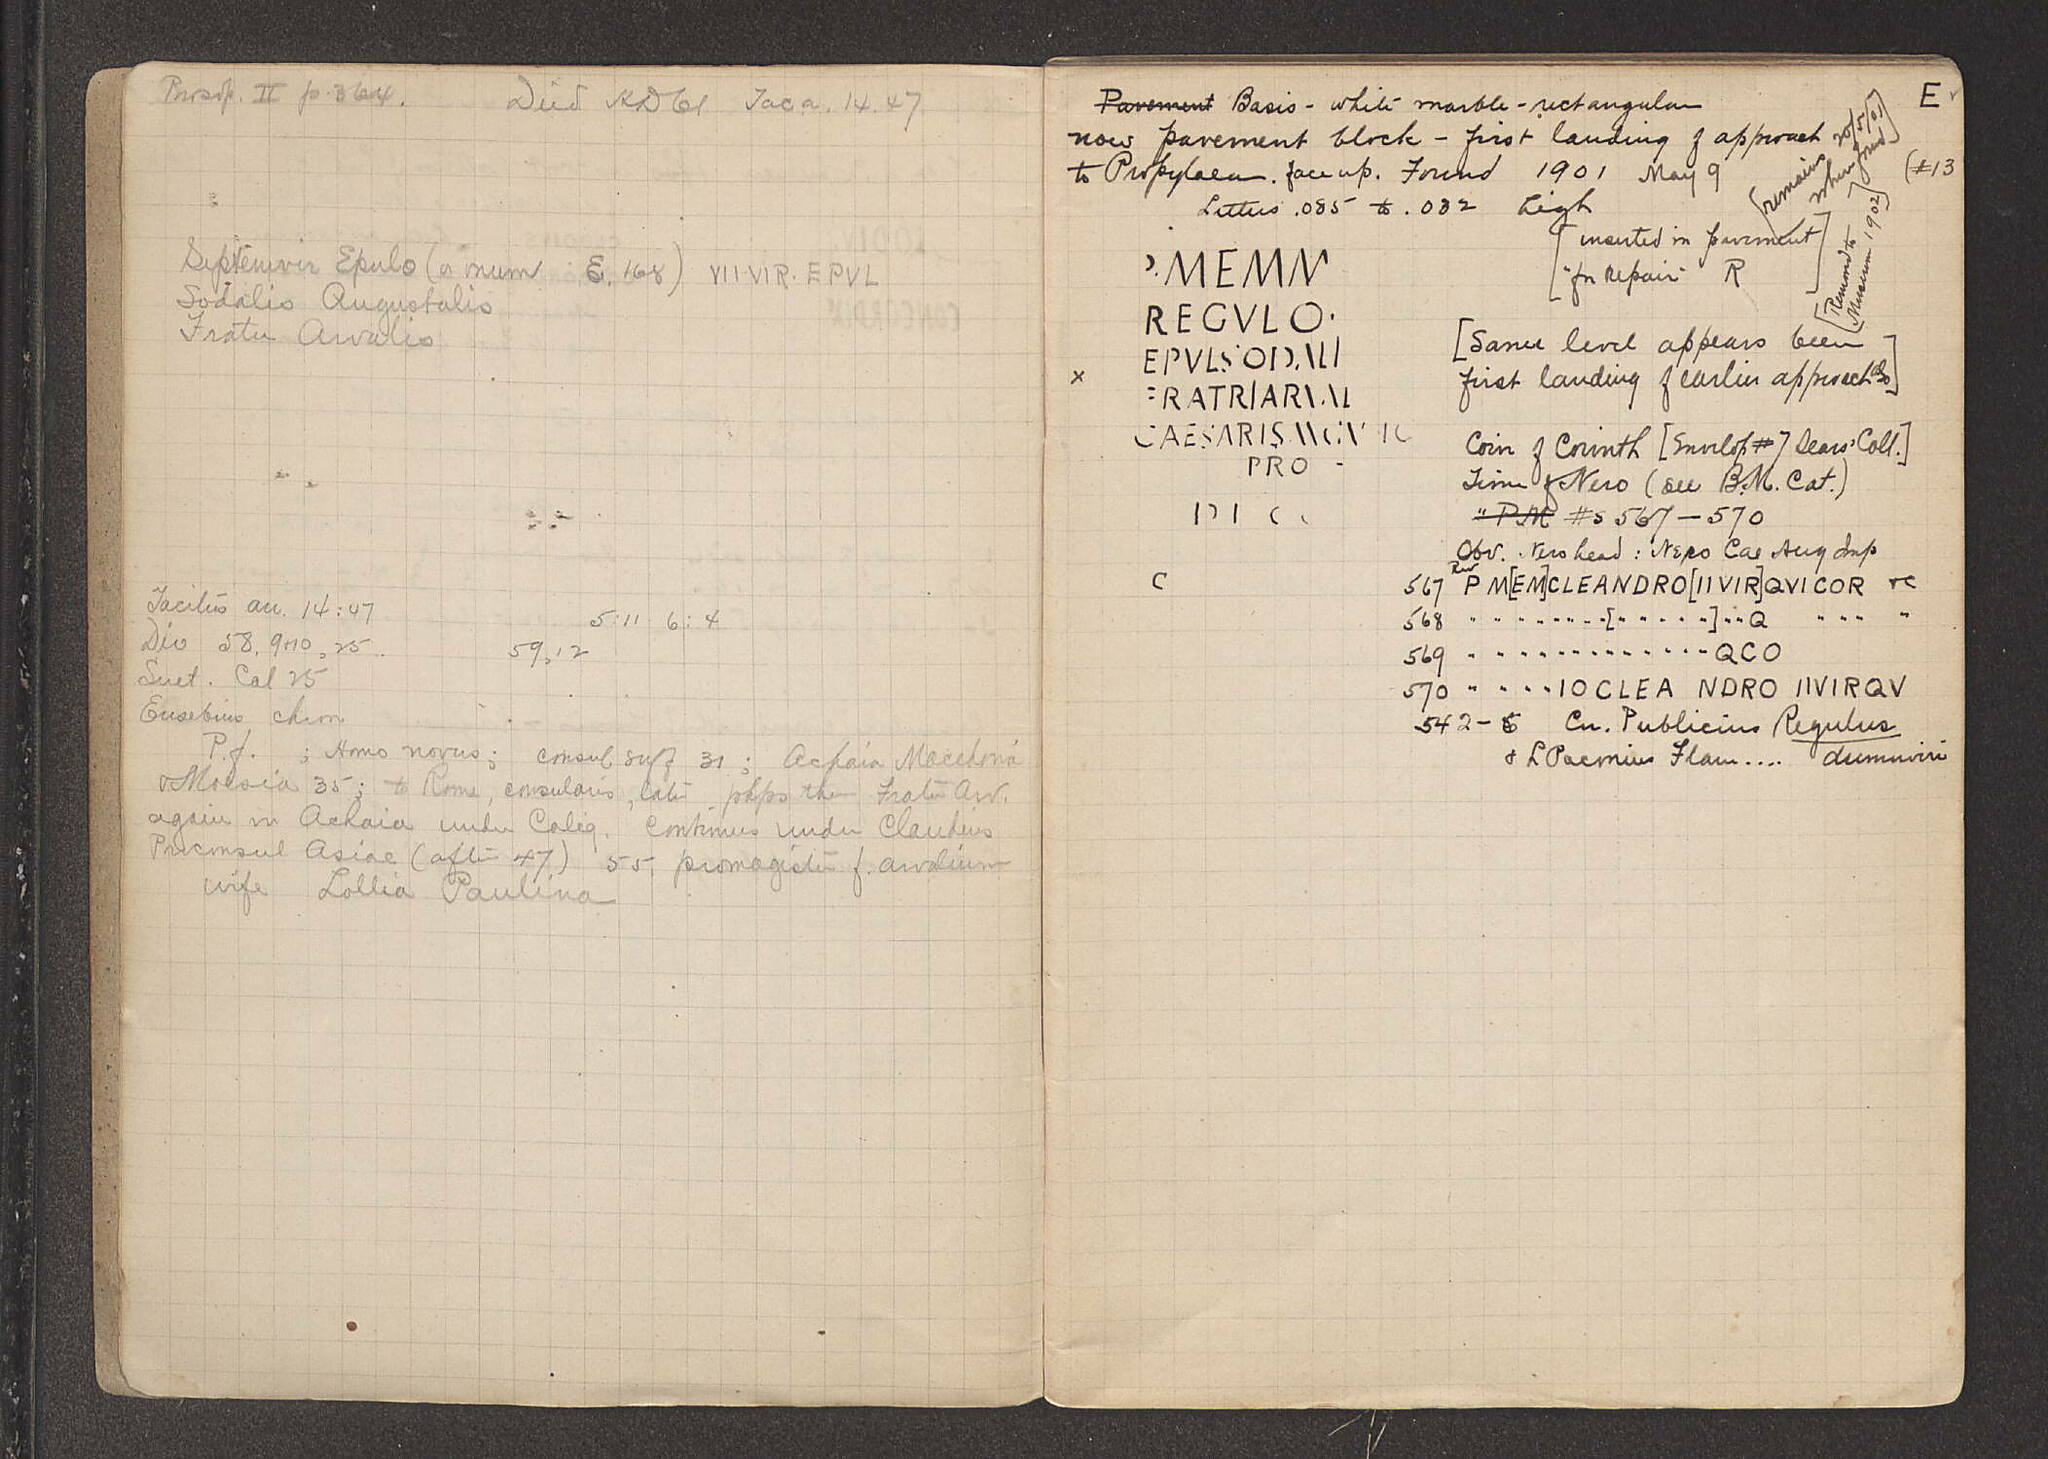 Prosop. II p. 364. Died AD 61 Tac a. 14.47
Septemvir Epulo (or num E. 168) VII·VIR·EPVL
Sodalis Augustalis
Frater Arvalis
Tacitus an. 14:47 5:11 6:4
Dio 58, 9+10, 25. 59, 12
Suet. Cal 25
Eusebius chron
P. f. ; Homo novus; consul suff 31; Achaia Macedonia
& Moesia 35; to Rome, consularis, later phps then Frater Arv.
again in Achaia under Calig. Continues under Claudius
Proconsul Asiae (after 47) 55, promagister f. arvalium
wife Lollia Paulina
E
Pavement Basis - white marble - rectangular
now pavement block - first landing of approach
to Propylaea. face up. Found 1901 May 9
(#13
[remains 20/5/01
where found]
Letters .085 to .032 high
[Removed to
Museum 1902]
[inserted in pavement
"for repair" R]
P·MEMN
REGVLO·
EPVLSODALI
FRATRIARVAL
CAESARIS
PRO -
C
x
[Same level appears been
first landing of earlier approach also]
Coin of Corinth [Envelop #7 Sears' Coll.]
Time of Nero (see B.M. Cat.)
" P M #s 567 - 570
Obv. Nero head : Nero Cae Aug Imp
567 Rev P M[EM]CLEANDRO[IIVIR]QVICOR
568 " " " " " " " "[" " " " "]" "Q " " " "
569 " " " " " " " " " " " " " "QCO
570 " " " "IOCLEA NDRO IIVIRQV
542 - 5 Cn. Publicius Regulus
& L Pacnius Flam.... duumviri